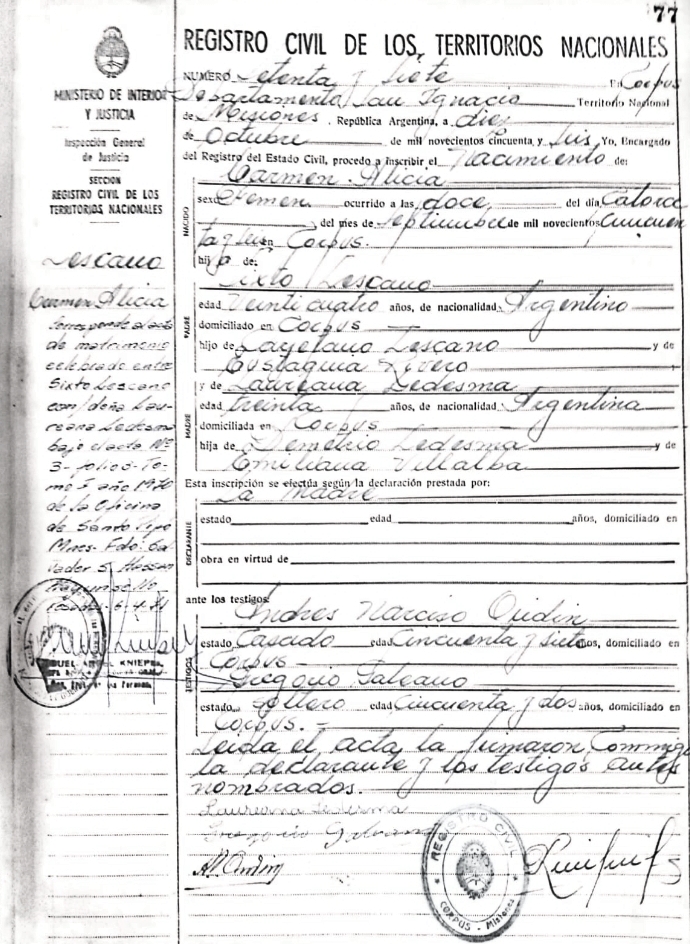 77
REGISTRO CIVIL DE LOS TERRITORIOS NACIONALES
NUMERO Setenta y Siete En Corpus
Departamento San Ignacio Territorio Nacional
de Misiones, República Argentina, a diez
de Octubre de mil novecientos cincuenta y seis, Yo, Encargado
del Registro del Estado Civil, procedo a inscribir el Nacimiento de:
Carmen Alicia
sexo Femen. ocurrido a las doce del día Catorce
del mes de Septiembre de mil novecientos Cincuen
en Corpus.
hija de:
Sixto Lescano
edad Veinticuatro años, de nacionalidad Argentino
domiciliado en Corpus
hijo de Cayetano Lescano y de
Eustaquia Rivero
y de Laureana Ledesma
edad treinta años, de nacionalidad Argentina
domiciliada en Corpus
hija de Demetrio Ledesma y de
Emiliana Villalba
Esta inscripción se efectúa según la declaración prestada por:
La Madre
estado edad años, domiciliado en
obra en virtud de
ante los testigos:
Andres Narciso
estado Casado edad Cincuenta y siete años, domiciliado en
Corpus
Gregorio Galeano
estado Soltero edad Cincuenta y dos años, domiciliado en
Corpus. =
Leida el acta la firmaron Conmigo
la declarante y los testigos antes
nombrados.
Laureana Ledesma
Gregorio Galeano
NACIDO
PADRE
MADRE
DECLARANTE
TESTIGOS
REGISTRO CIVIL
CORPUS - Misiones
MINISTERIO DE INTERIOR
Y JUSTICIA
Inspección General
de Justicia
SECCION
REGISTRO CIVIL DE LOS
TERRITORIOS NACIONALES
Lescano
Carmen Alicia
Corresponde al acta
de matrimonio
celebrado entre
Sixto Lescano
con doña Lau-
reana Ledesma
bajo el acta Nº
3- folio 5- To-
mo I año 1970
de la Oficina
de Santo Pipo
Mnes. Fdo:
6-4-81
MIGUEL KNIEPS